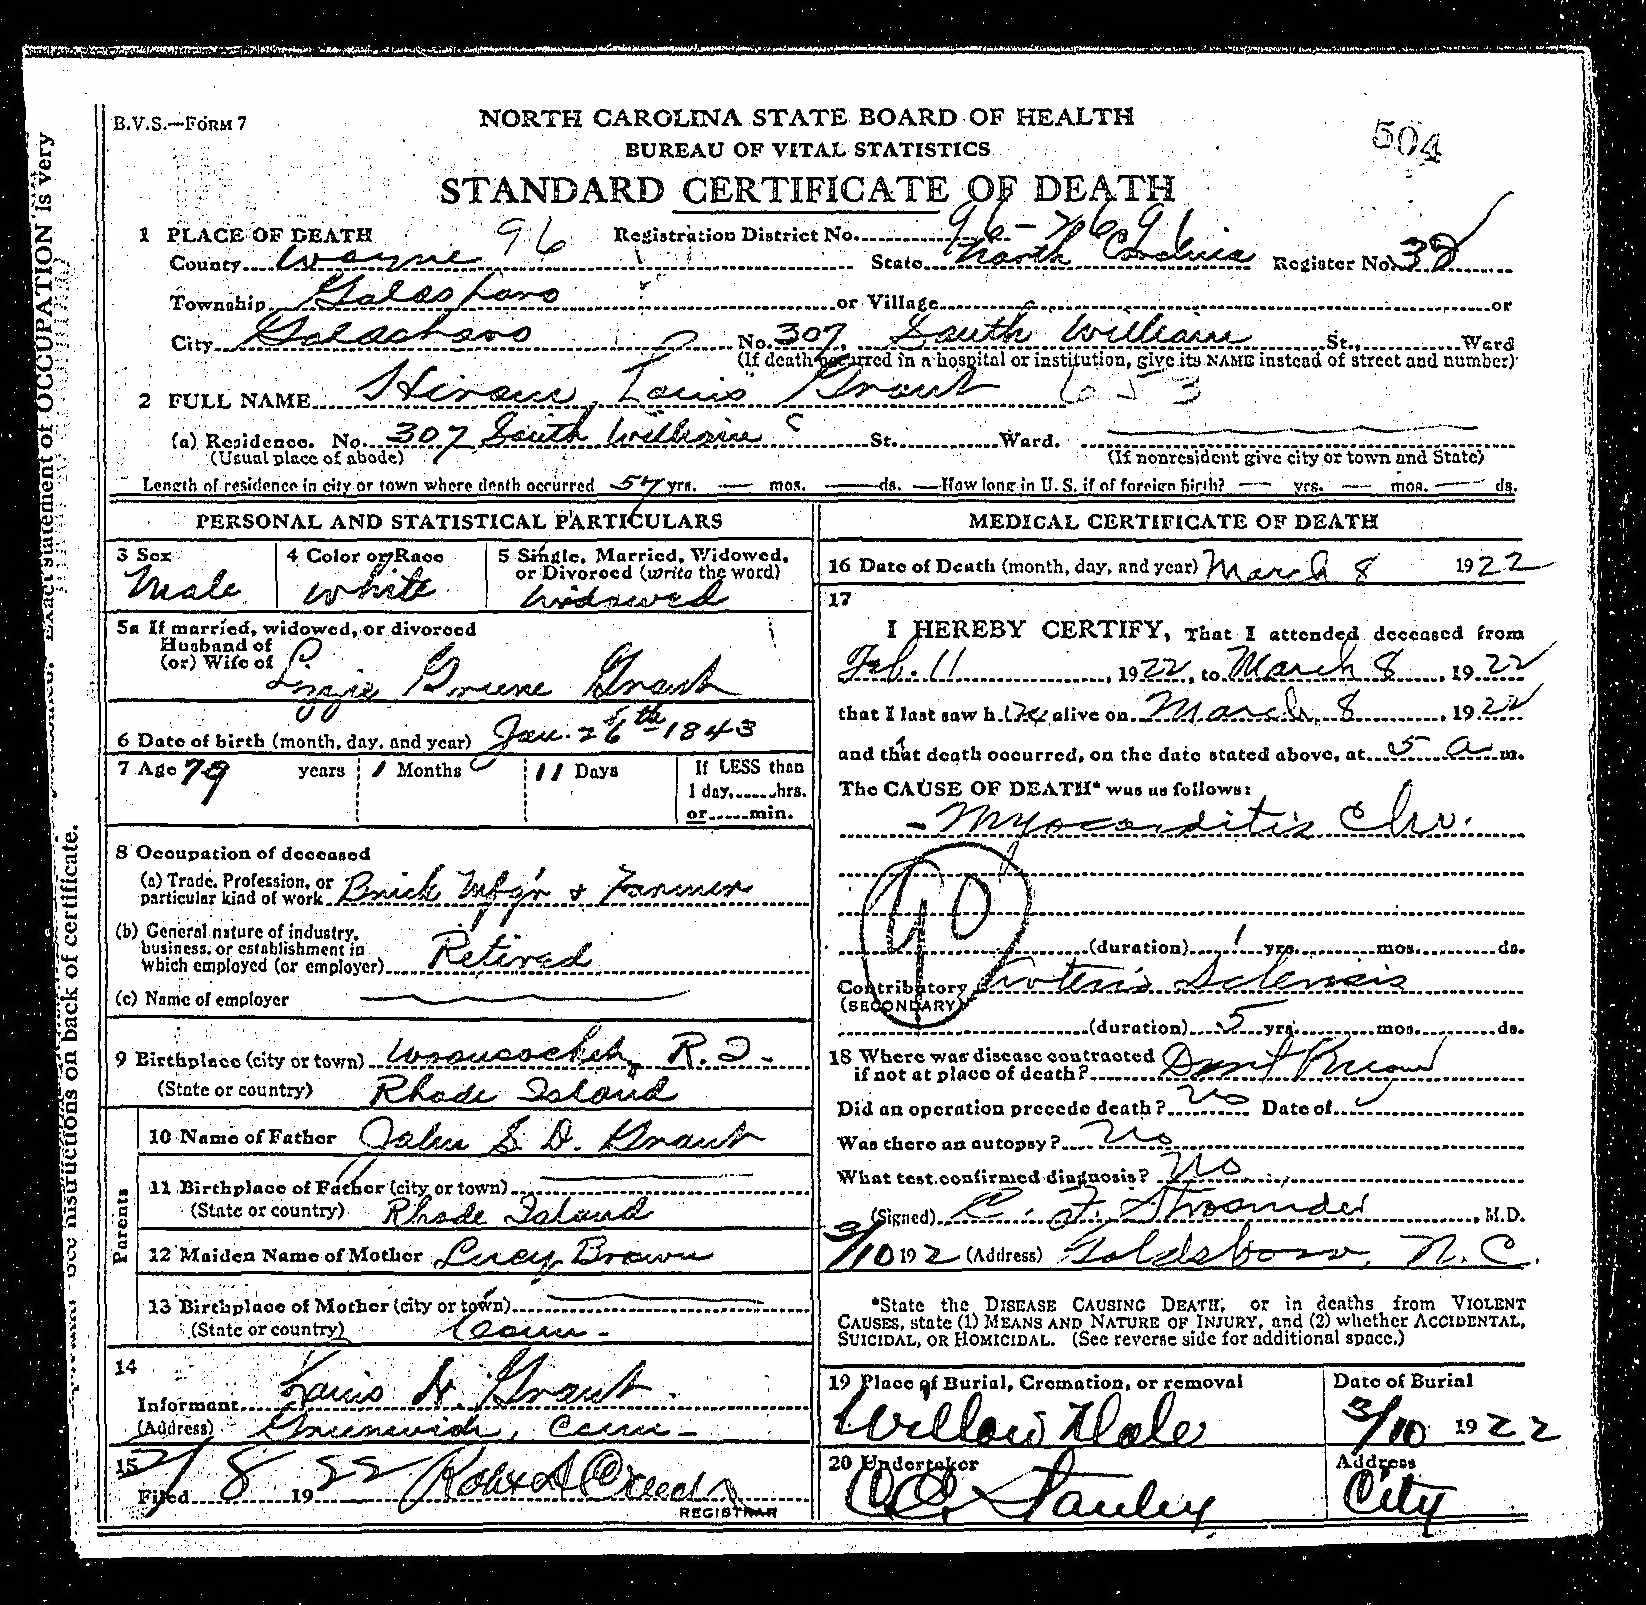 B.V.S.—FORM 7
NORTH CAROLINA STATE BOARD OF HEALTH
504
BUREAU OF VITAL STATISTICS
STANDARD CERTIFICATE OF DEATH
1 PLACE OF DEATH 96 Registration District No. 96-7691
County Wayne State North Carolina Register No. 38
Township Goldsboro or Village or
City Goldsboro No. 307, South William St., Ward
(If death occurred in a hospital or institution, give its NAME instead of street and number)
2 FULL NAME Hiram Louis Grant 653
(a) Residence. No. 307 South William St. Ward.
(Usual place of abode) (If nonresident give city or town and State)
Length of residence in city or town where death occurred 57 yrs. — mos. — ds. —How long in U. S. if of foreign birth? — yrs. — mos. — ds.
PERSONAL AND STATISTICAL PARTICULARS
3 Sex 4 Color or Race 5 Single, Married, Widowed, or Divorced (write the word)
Male white Widowed
5a If married, widowed, or divorced
Husband of
(or) Wife of
Lizzie Greene Grant
6 Date of birth (month, day, and year) Jan. 26th 1843
7 Age 79 years 1 Months 11 Days If LESS than
1 day, hrs.
or min.
8 Occupation of deceased
(a) Trade, Profession, or
particular kind of work Brick Mfg'r & Farmer
(b) General nature of industry,
business, or establishment in
which employed (or employer) Retired
(c) Name of employer
9 Birthplace (city or town) Woonsocket, R.I.
(State or country) Rhode Island
Parents
10 Name of Father John S. D. Grant
11 Birthplace of Father (city or town)
(State or country) Rhode Island
12 Maiden Name of Mother Lucy Brown
13 Birthplace of Mother (city or town)
(State or country) Conn.
14
Informant Louis H. Grant
(Address) Greenwich, Conn.
15
Filed 8 1922
REGISTRAR
MEDICAL CERTIFICATE OF DEATH
16 Date of Death (month, day, and year) March 8 1922
17
I HEREBY CERTIFY, That I attended deceased from
Feb. 11, 1922, to March 8, 1922
that I last saw him alive on March 8, 1922
and that death occurred, on the date stated above, at 5 a m.
The CAUSE OF DEATH* was as follows:
Myocarditis Chr.
90
(duration) 1 yrs. mos. ds.
Contributory Arterio Sclerosis
(SECONDARY)
(duration) 5 yrs. mos. ds.
18 Where was disease contracted
if not at place of death? Don't Know
Did an operation precede death? No Date of
Was there an autopsy? No
What test confirmed diagnosis? No
(Signed) C. F. Strosnider, M.D.
3/10 192 (Address) Goldsboro, N.C.
*State the DISEASE CAUSING DEATH, or in deaths from VIOLENT
CAUSES, state (1) MEANS AND NATURE OF INJURY, and (2) whether ACCIDENTAL,
SUICIDAL, OR HOMICIDAL. (See reverse side for additional space.)
19 Place of Burial, Cremation, or removal Date of Burial
Willow Dale 3/10 1922
20 Undertaker Address
Stanley City
Exact statement of OCCUPATION is very
See instructions on back of certificate.